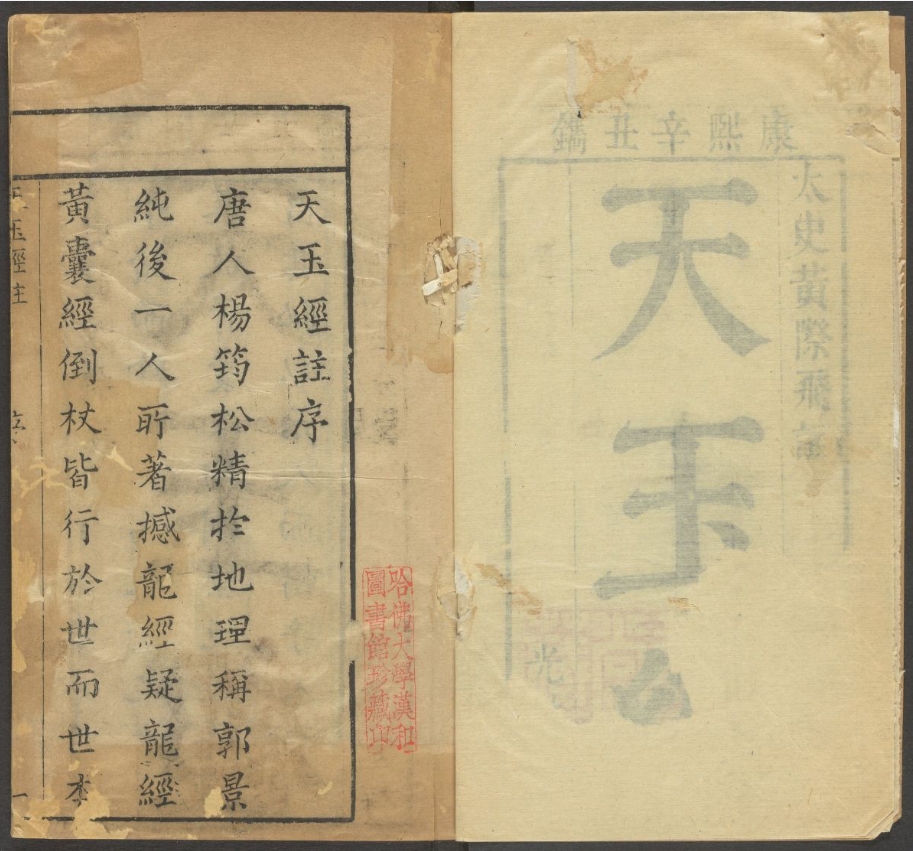 康熙辛丑鐫
太史黃際飛註
天玉
哈佛大學漢和
圖書館珍藏印
天玉經註序
唐人楊筠松精扵地理稱郭景
純後一人所著撼龍經疑龍經
黃囊經倒杖皆行於世而世本
天玉經註 序 一